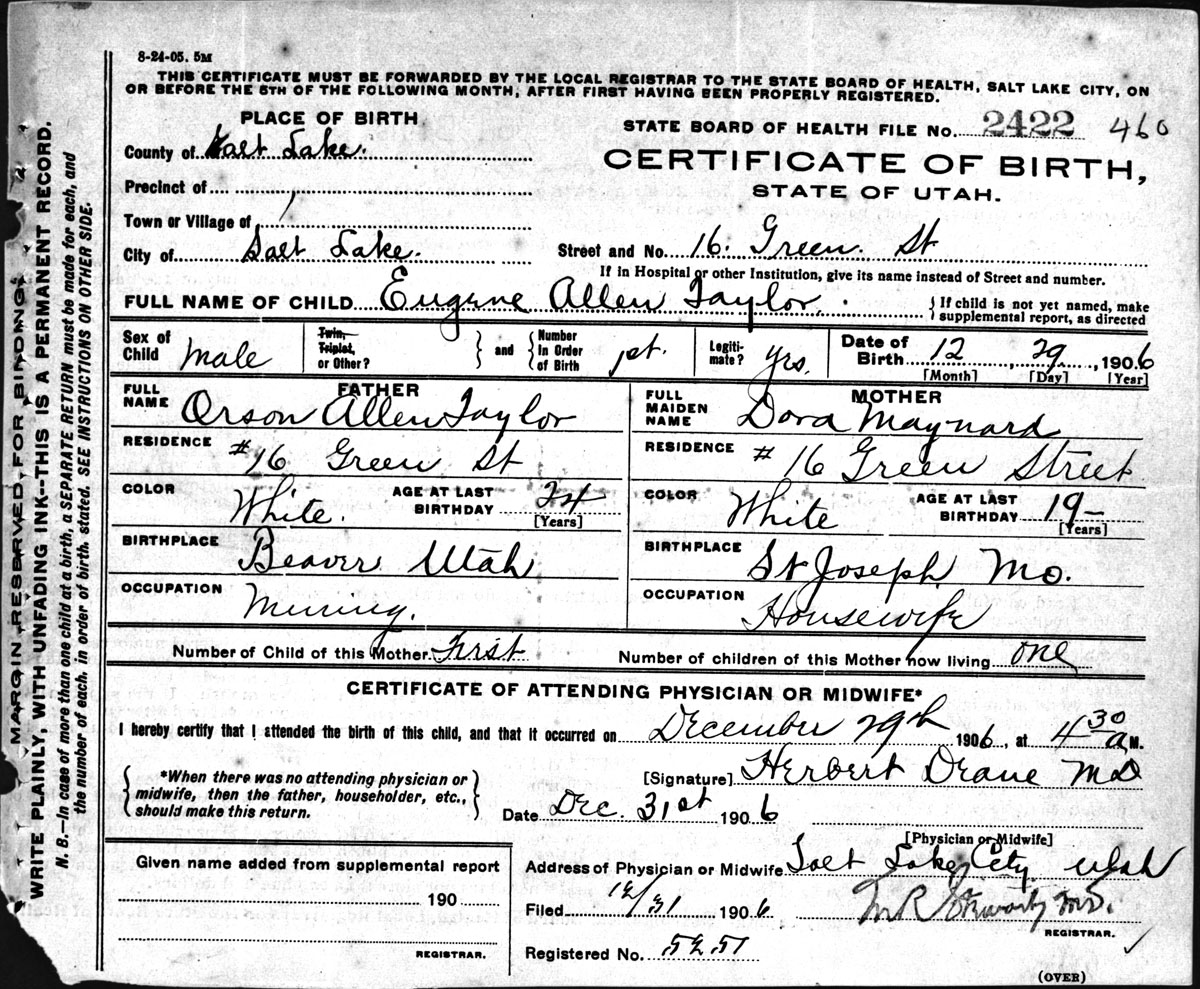 8-24-05. 5M
THIS CERTIFICATE MUST BE FORWARDED BY THE LOCAL REGISTRAR TO THE STATE BOARD OF HEALTH, SALT LAKE CITY, ON
OR BEFORE THE 5TH OF THE FOLLOWING MONTH, AFTER FIRST HAVING BEEN PROPERLY REGISTERED.
PLACE OF BIRTH
STATE BOARD OF HEALTH FILE NO. 2422 460
County of Salt Lake.
CERTIFICATE OF BIRTH,
STATE OF UTAH.
Precinct of
Town or Village of
City of Salt Lake.
Street and No. 16. Green. St
If in Hospital or other Institution, give its name instead of Street and number.
FULL NAME OF CHILD Eugene Allen Taylor.
If child is not yet named, make
supplemental report, as directed
Sex of Child Male
Twin, Triplet, or Other?
and
Number in Order of Birth 1st.
Legiti-mate? yrs.
Date of Birth 12 29, 1906
[Month] [Day] [Year]
FATHER
FULL NAME Orson Allen Taylor
MOTHER
FULL MAIDEN NAME Dora Maynard
RESIDENCE #16 Green St
RESIDENCE # 16 Green Street
COLOR White.
AGE AT LAST BIRTHDAY 24
[Years]
COLOR White
AGE AT LAST BIRTHDAY 19-
[Years]
BIRTHPLACE Beaver Utah
BIRTHPLACE St Joseph Mo.
OCCUPATION Mining.
OCCUPATION Housewife
Number of Child of this Mother First
Number of children of this Mother now living one
CERTIFICATE OF ATTENDING PHYSICIAN OR MIDWIFE*
I hereby certify that I attended the birth of this child, and that it occurred on December 29th 1906, at 4 30 a M.
*When there was no attending physician or
midwife, then the father, householder, etc.,
should make this return.
[Signature] Herbert Deane MD
Date Dec. 31st 1906
[Physician or Midwife]
Given name added from supplemental report
190
REGISTRAR.
Address of Physician or Midwife Salt Lake City Utah
Filed 12/31 1906
M R
M.D.
REGISTRAR.
Registered No. 5251
(OVER)
MARGIN RESERVED FOR BINDING.
WRITE PLAINLY, WITH UNFADING INK--THIS IS A PERMANENT RECORD.
N. B.—In case of more than one child at a birth, a SEPARATE RETURN must be made for each, and
the number of each, in order of birth, stated. SEE INSTRUCTIONS ON OTHER SIDE.